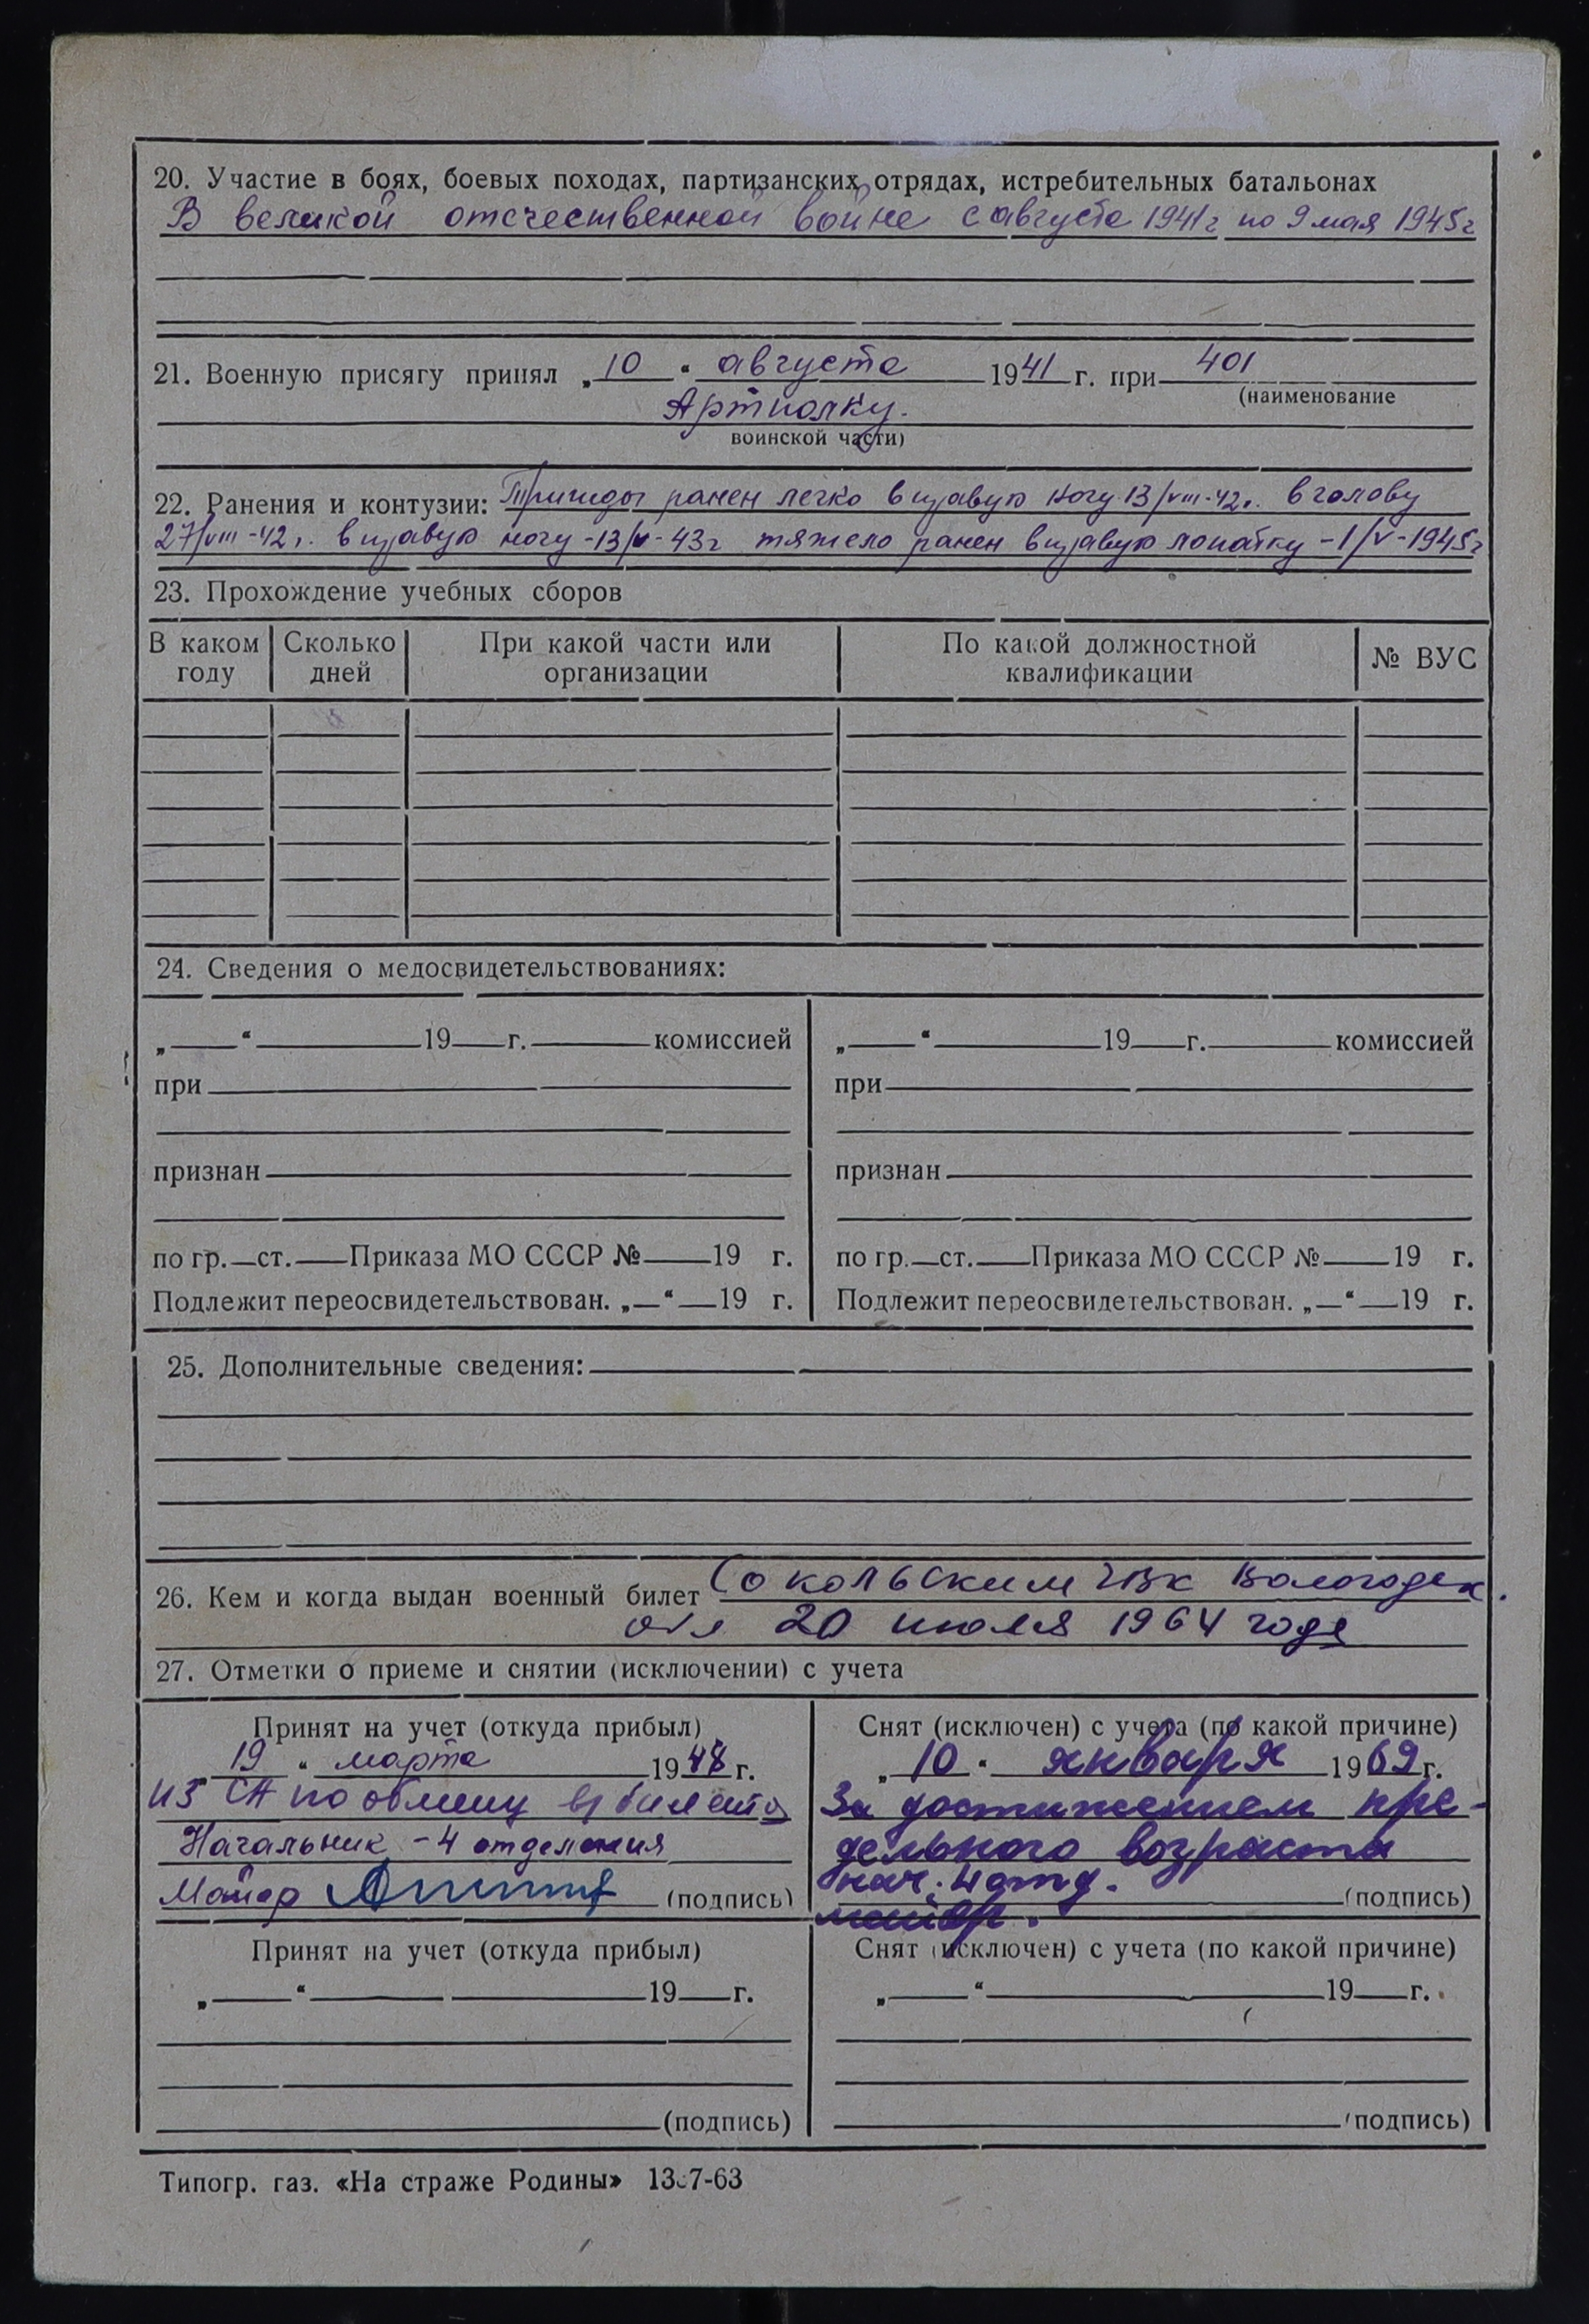 20. Участие в боях, боевых походах, партизанских отрядах, истребительных батальонах
В великой отечественной войне с августа 1941 г по 9 мая 1945 г
21. Военную присягу принял „10“ августа 1941 г. при 401
(наименование
Артполку.
воинской части)
22. Ранения и контузии: Трижды ранен легко в правую ногу 13/VIII-42г. в голову
27/VIII-42г. в правую ногу -13/V-43г тяжело ранен в правую лопатку -1/V-1945г
23. Прохождение учебных сборов
В каком году Сколько дней При какой части или организации По какой должностной квалификации № ВУС
24. Сведения о медосвидетельствованиях:
„ “ 19 г. комиссией
при
признан
по гр. ст. Приказа МО СССР № 19 г.
Подлежит переосвидетельствован. „ “ 19 г.
„ “ 19 г. комиссией
при
признан
по гр. ст. Приказа МО СССР № 19 г.
Подлежит переосвидетельствован. „ “ 19 г.
25. Дополнительные сведения:
26. Кем и когда выдан военный билет Сокольским ГВК Вологодск.
обл 20 июля 1964 года
27. Отметки о приеме и снятии (исключении) с учета
Принят на учет (откуда прибыл)
19 “ марта 1948 г.
из СА по обмену в/билета
Начальник -4 отделения
Майор (подпись)
Снят (исключен) с учета (по какой причине)
„10“ января 1969 г.
За достижением пре-
дельного возраста
нач. 4 отд.
майор. (подпись)
Принят на учет (откуда прибыл)
„ “ 19 г.
(подпись)
Снят (исключен) с учета (по какой причине)
„ “ 19 г.
(подпись)
Типогр. газ. «На страже Родины» 13 7-63